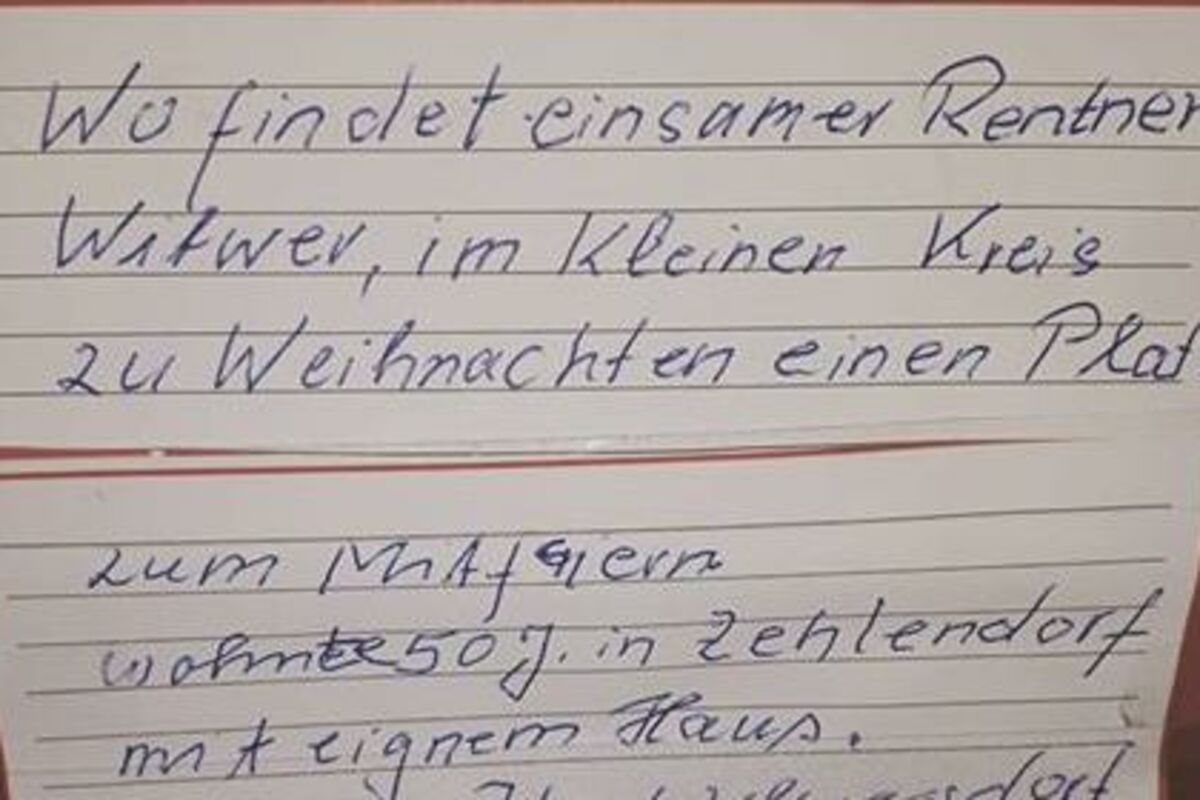 Wo findet einsamer Rentner
Witwer, im kleinen Kreis
zu Weihnachten einen Plat
zum Mitfeiern
wohnte 50 J. in Zehlendorf
mit eignem Haus.